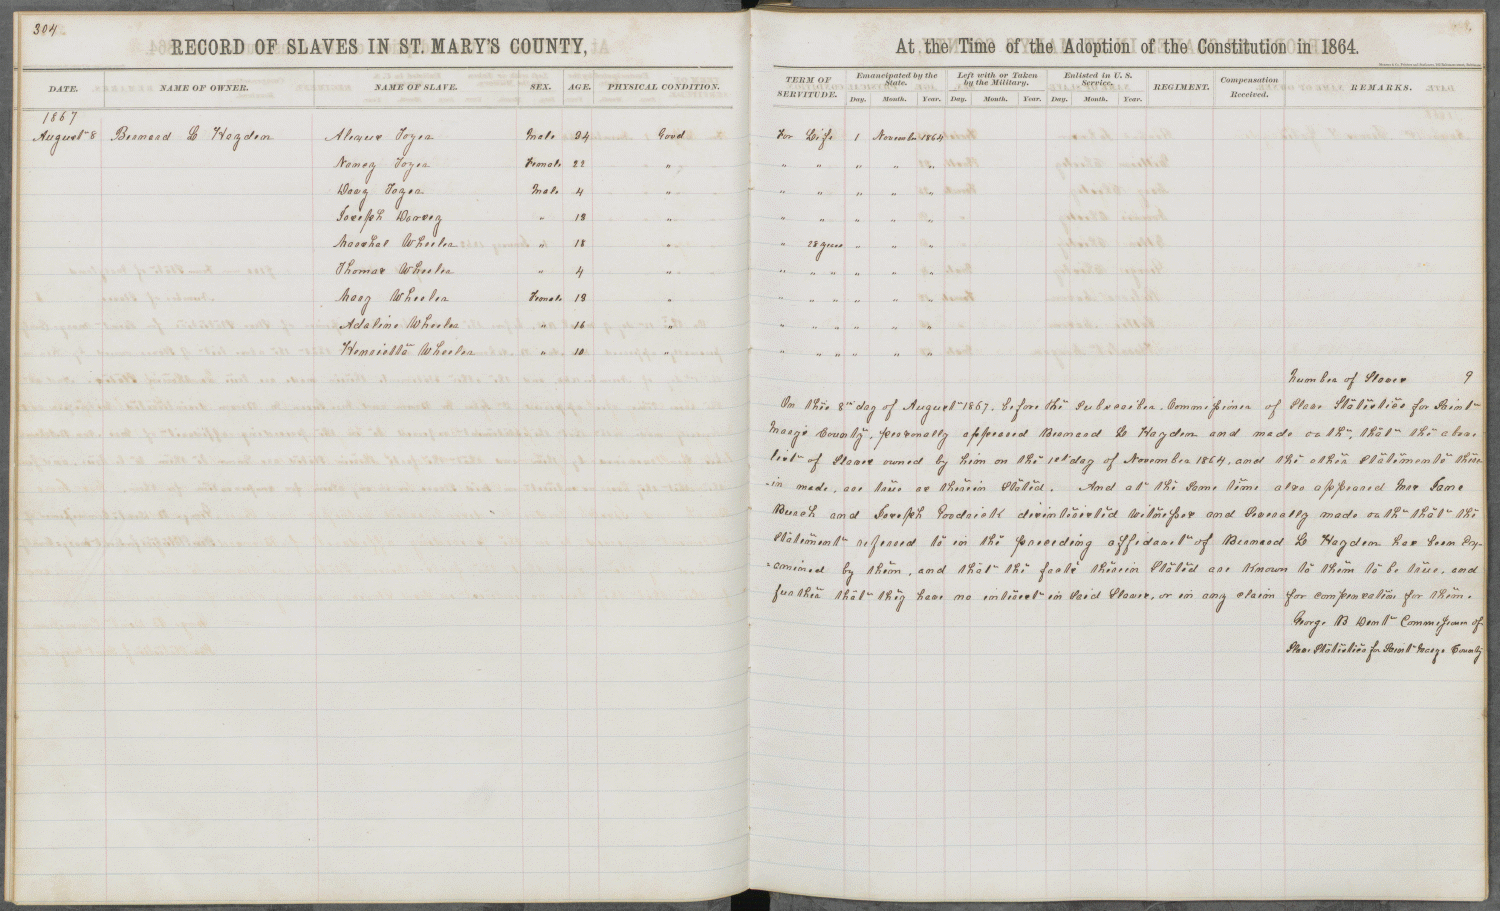 304
RECORD OF SLAVES IN ST. MARY'S COUNTY, At the Time of the Adoption of the Constitution in 1864.
DATE. NAME OF OWNER. NAME OF SLAVE. SEX. AGE. PHYSICAL CONDITION. TERM OF SERVITUDE. Emancipated by the State. Day. Month. Year. Left with or Taken by the Military. Day. Month. Year. Enlisted in U. S. Service. Day. Month. Year. REGIMENT. Compensation Received. REMARKS.
1867
August 8 Bernard L Hayden Alexius Toyer Male 24 Good For Life 1 November 1864
Nancy Toyer Female 22 " " " " " "
Toyer Male 4 " " " " " "
Joseph Dorsey " 19 " " " " " "
Marshal Wheeler " 18 " " 28 years " " "
Thomas Wheeler " 4 " " " " " " "
Mary Wheeler Female 19 " " " " " " "
Adaline Wheeler " 16 " " " " " " "
Henrietta Wheeler " 10 " " " " " " "
Number of Slaves 9
On this 8th day of August 1867. before the subscriber. Commissioner of Slave Statistics for Saint
Mary's County, personally appeared Bernard L Hayden and made oath, that the above
list of Slaves owned by him on the 1st day of November 1864, and the other statements there-
-in made, are true as therein stated. And at the same time also appeared
Burch and Joseph Goodrick disinterested witnesses and severally made oath that the
statement referred to in the preceding affidavit of Bernard L Hayden has been ex-
-amined by them, and that the facts therein stated are known to them to be true, and
further that they have no interest in said Slaves, or in any claim for compensation for them.
George B Dent Commissioner of
Slave Statistics for Saint Marys County